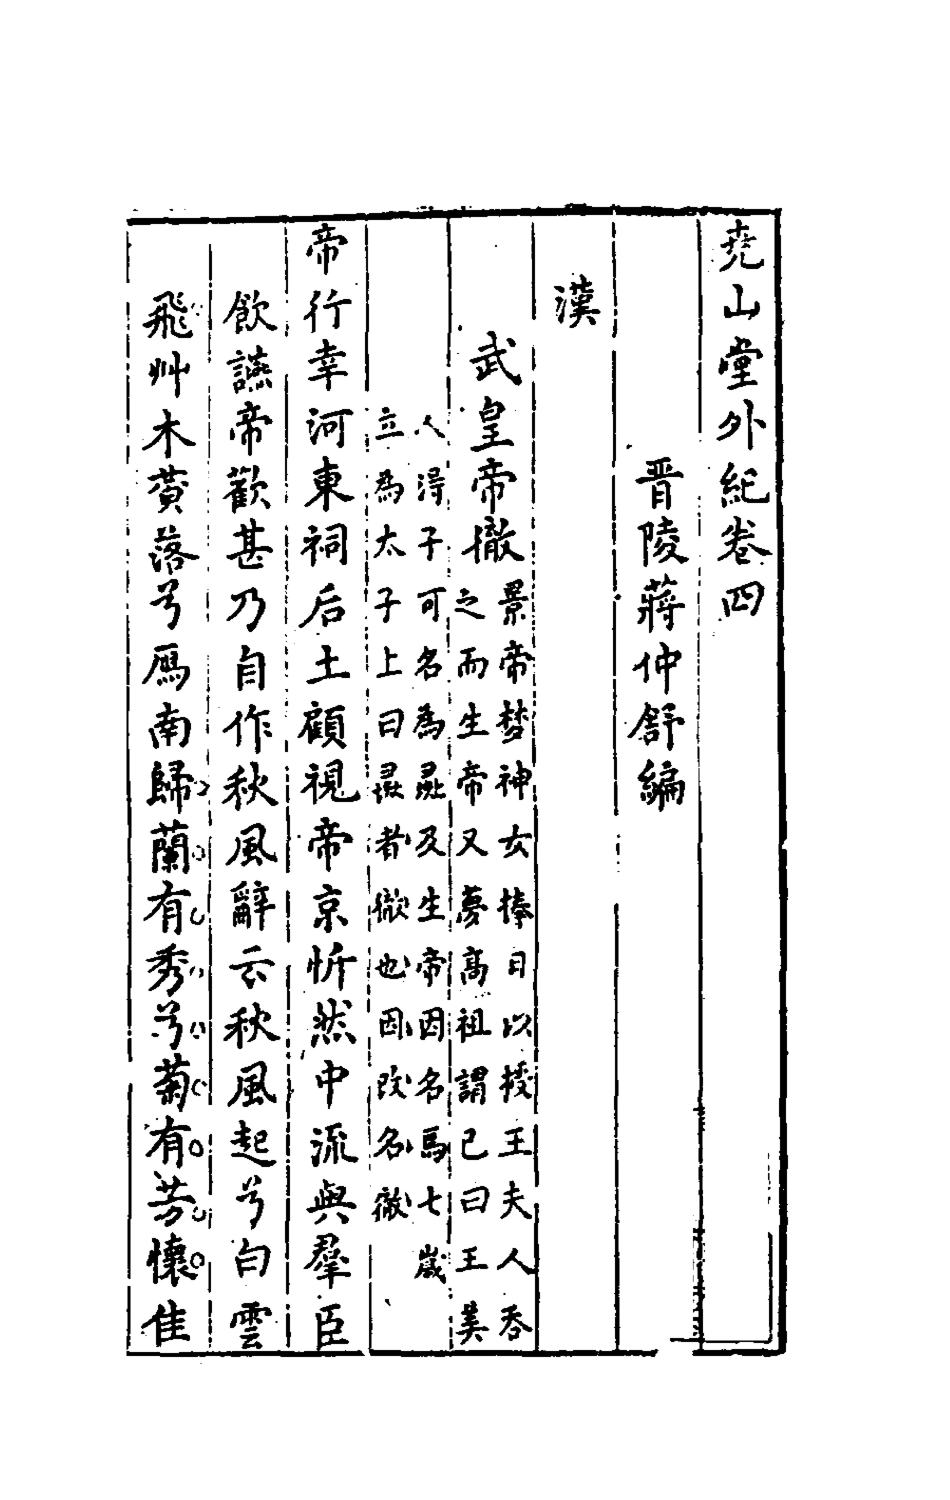 尭山堂外紀卷四
晋陵蔣仲舒編
漢
武皇帝徹
景帝梦神女捧日以授王夫人吞
之而生帝又夢高祖謂己曰王美
人得子可名為彘及生帝因名焉七歲
立為太子上曰彘者徹也因改名徹
帝行幸河東祠后土顧視帝京忻然中流與羣臣
飲讌帝歡甚乃自作秋風辭云秋風起兮白雲
飛艸木黃落兮鴈南歸蘭有秀兮菊有芳懷佳